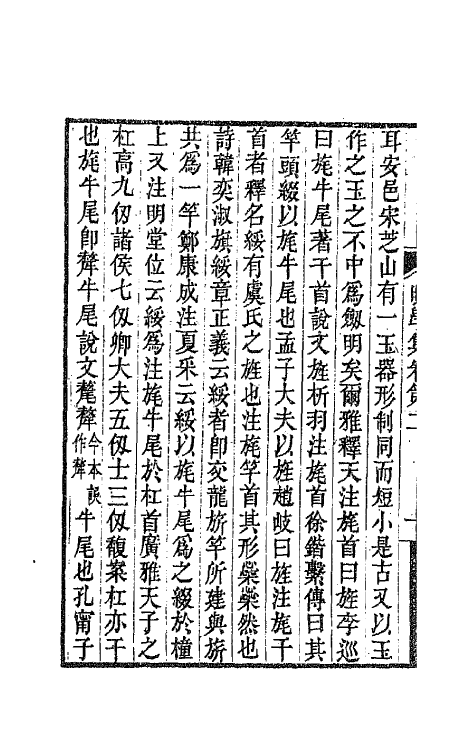 耳安邑宋芝山有一玉器形制同而短小是古又以玉
作之玉之不中爲劔明矣爾雅釋天注旄首曰旌李巡
曰旄牛尾著干首說文旌析羽注旄首徐鍇繫傳曰其
竿頭綴以旄牛尾也孟子大夫以旌趙岐曰旌注旄干
首者釋名綏有虞氏之旌也注旄竿首其形橤橤然也
詩韓奕淑旂綏章正義云綏者即交龍旂竿所建與旂
共爲一竿鄭康成注夏采云綏以旄牛尾爲之綴於橦
上又注明堂位云綏爲注旄牛尾於杠首廣雅天子之
杠高九仞諸侯七仞卿大夫五仞士三仞馥案杠亦干
也旄牛尾卽犛牛尾說文氂犛今本誤作犛牛尾也孔甯子
集卷第二